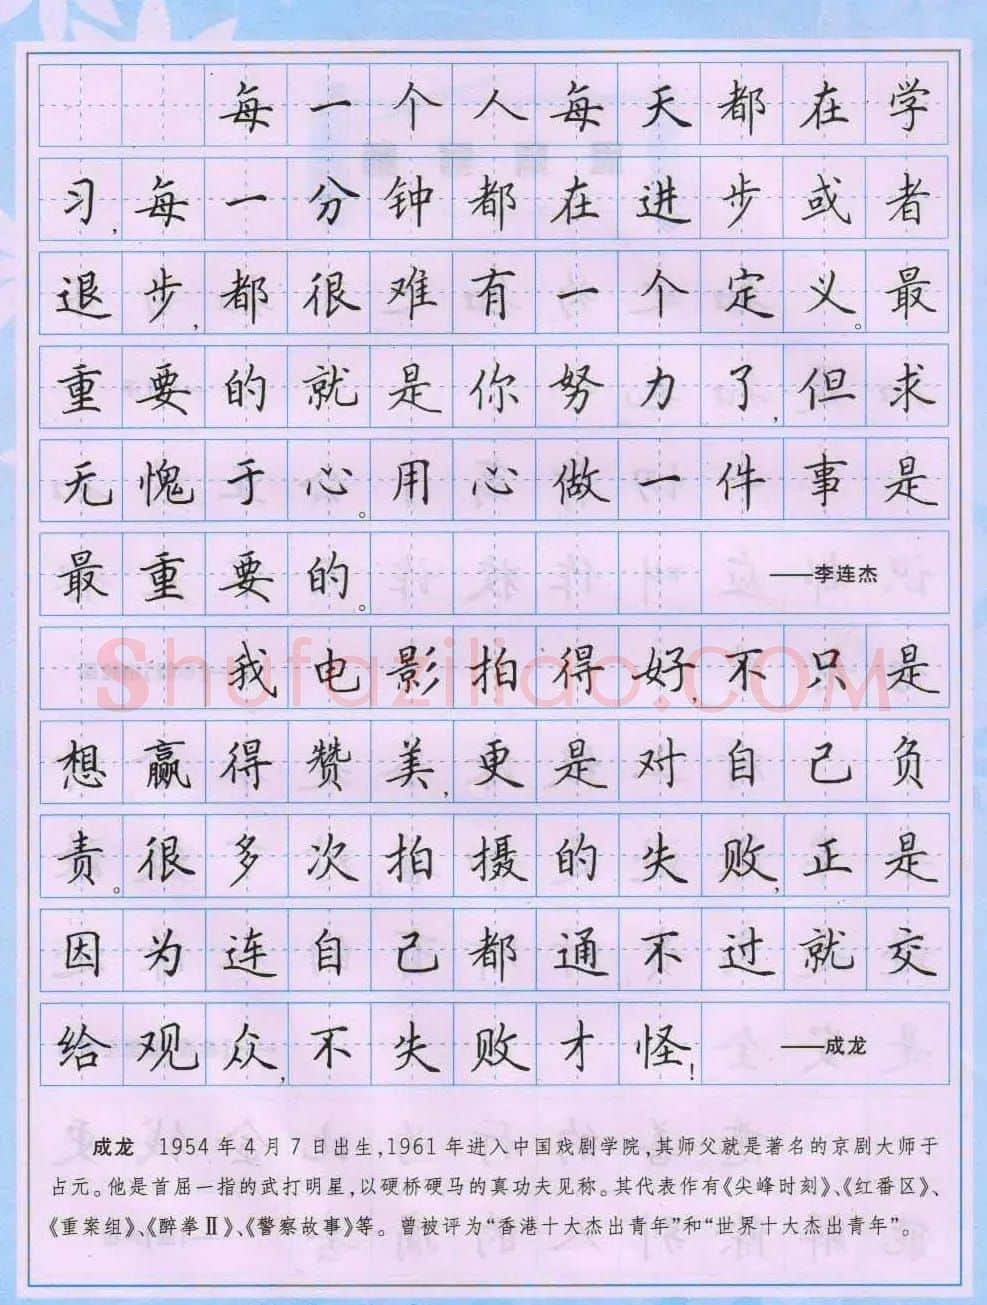 每一个人每天都在学
习,每一分钟都在进步或者
退步,都很难有一个定义。最
重要的就是你努力了,但求
无愧于心。用心做一件事是
最重要的。 ——李连杰
Shufaziliao.COM
我电影拍得好,不只是
想赢得赞美,更是对自己负
责。很多次拍摄的失败,正是
因为连自己都通不过就交
给观众,不失败才怪! ——成龙
成龙 1954年4月7日出生,1961年进入中国戏剧学院,其师父就是著名的京剧大师于
占元。他是首屈一指的武打明星,以硬桥硬马的真功夫见称。其代表作有《尖峰时刻》、《红番区》、
《重案组》、《醉拳Ⅱ》、《警察故事》等。曾被评为“香港十大杰出青年”和“世界十大杰出青年”。